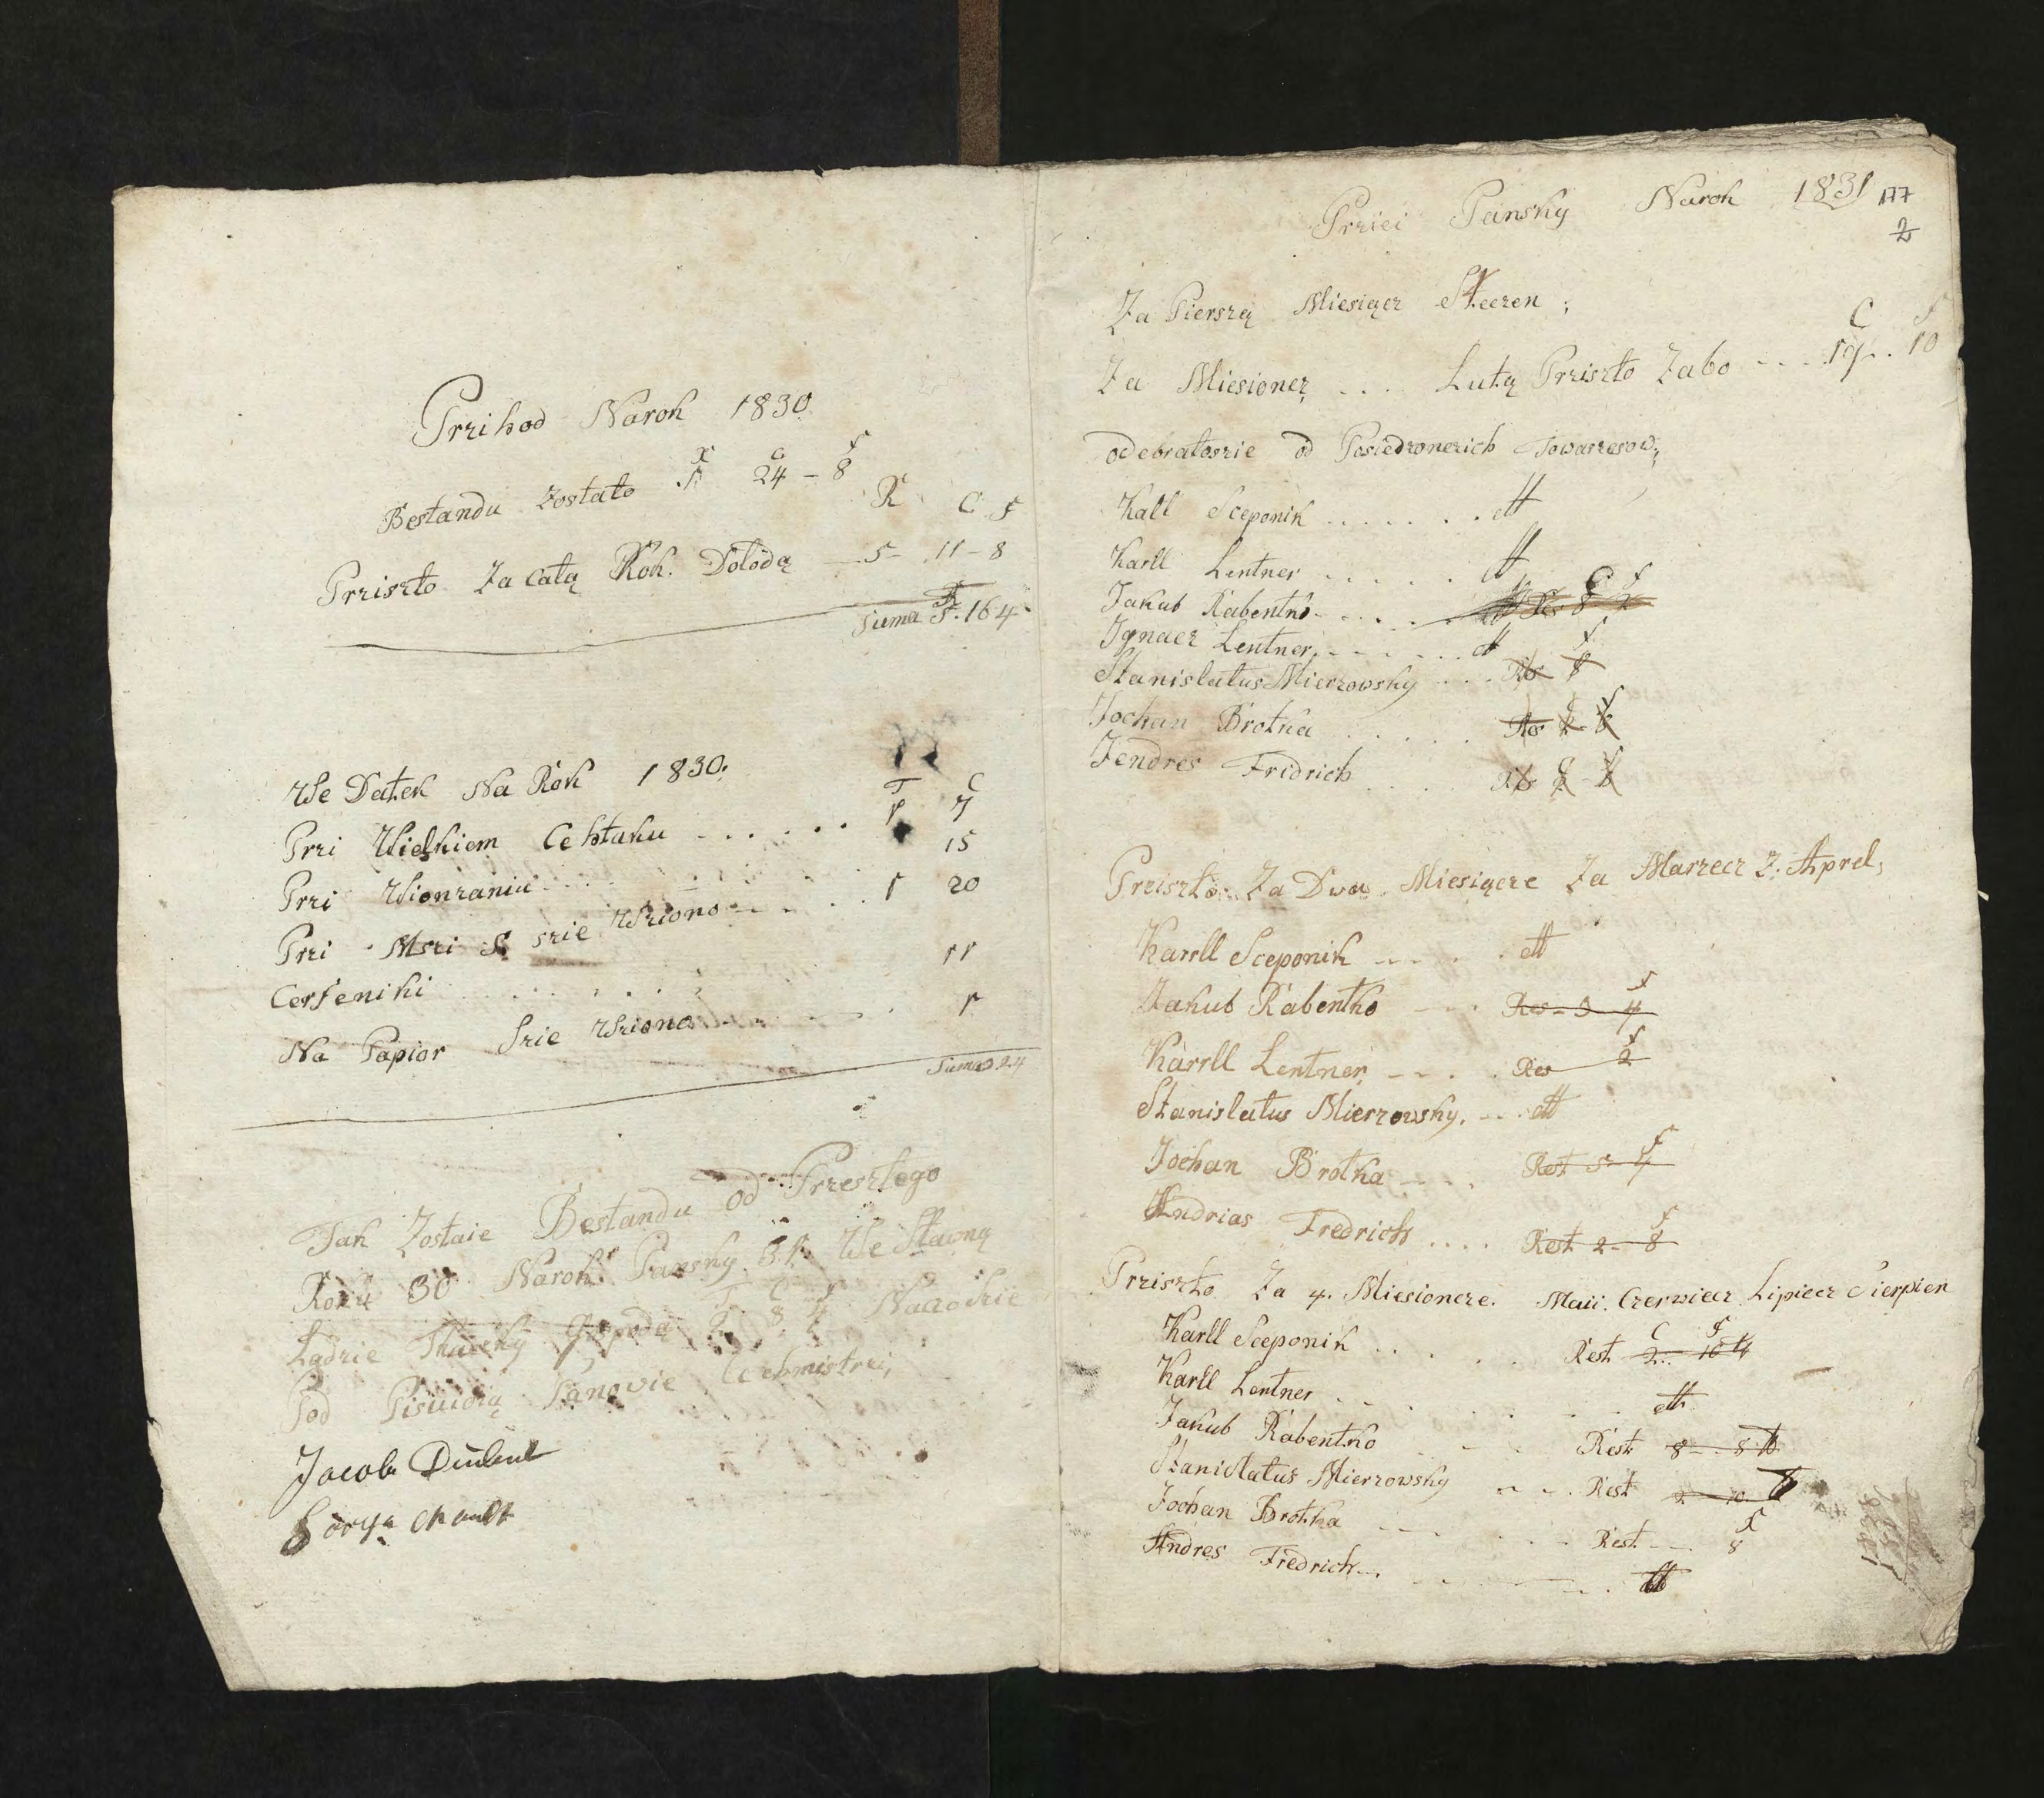 Przihod Narok 1830
R C f
Bestandu Zostało 1 24 - 8
R C f
Prziszło Za Całą Rok. Dołodą 5 - 11 - 8
Suma 5. 16 4
We Datek Na Rok 1830.
T C
Przi Wielkiem Cehtaku . . . . . . 1 7
Przi Wionzaniu . . . 15
Przi Mszi S szie Wziono . . . . 1 20
Cerfeniki . . . . . . 11
Na Papior Szie Wziono . . . . . 1
Suma 3 24
Tak Zostaie Bestandu od Przeszłego
Roku 30 Narok Pansky 31 We Sławną
T C f
Ładzie Tkaczky Gospodą 1. 8. 4 Nacodzie
Pod Pisuioą Panovie Cehmistrzi,
Jacob
Przici Pansky Narok 1831 177
2
Za Pierszą Miesiącz Steczen ;
C f
Za Miesioncz . . . Lutą Prziszło Zabo . . . 19 . . 10
odebrałoszie od Posiedzonerich Towarzesow;
Kall Sceponik . . . . . . . dt
Karll Lentner . . . . . . dt
C f
Jakub Rabentko . . . . . Res 8 2
Ignacz Lentner . . . . . . dt
f
Stanislatus Mierzowsky . . . Res 8
Jochan Brotka . . . . . . Res 2 8
Jendres Fridrich . . . . Res 2 8
Prziszło Za Dwa Miesiącze Za Marzecz Z. Aprel;
Karrll Sceponik . . . . . dt
f
Jakub Rabentko . . . . Res - 3 4
f
Karrll Lentner . . . . Res 2
Stanislatus Mierzowsky. . . . dt
f
Jochan Brotka . . . . Rest 5 - 4
f
Andrias Fredrich . . . . Rest 2 - 8
Prziszło Za 4. Miesioncze. Maii. Czerwiecz Lipiecz Sierpien
C f
Karll Sceponik . . . . . . Rest 2 . . 10 4
Karll Lentner . . . . . . . . dt
Jakub Rabentko . . . . Rest 8 - . 8
Stanislatus Mierzowsky . . . . Rest 2 10
f
Jochan Brotka . . . . . . Rest . . . 8
Andres Fredrich . . . . . . . . dt